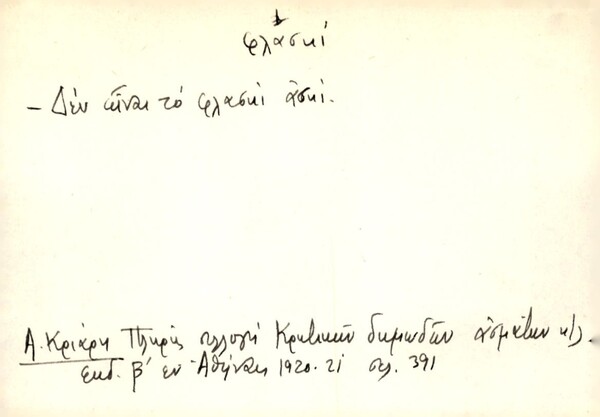 φλασκί
– Δέν εἶναι τό φλασκί ἀσκί.
Α. Κριάρη Πλήρης συλλογή Κρητικῶν δημωδῶν ἀσμάτων κ/λ.
Ἐκδ. β' ἐν Ἀθήναις 1920-21 σελ. 391